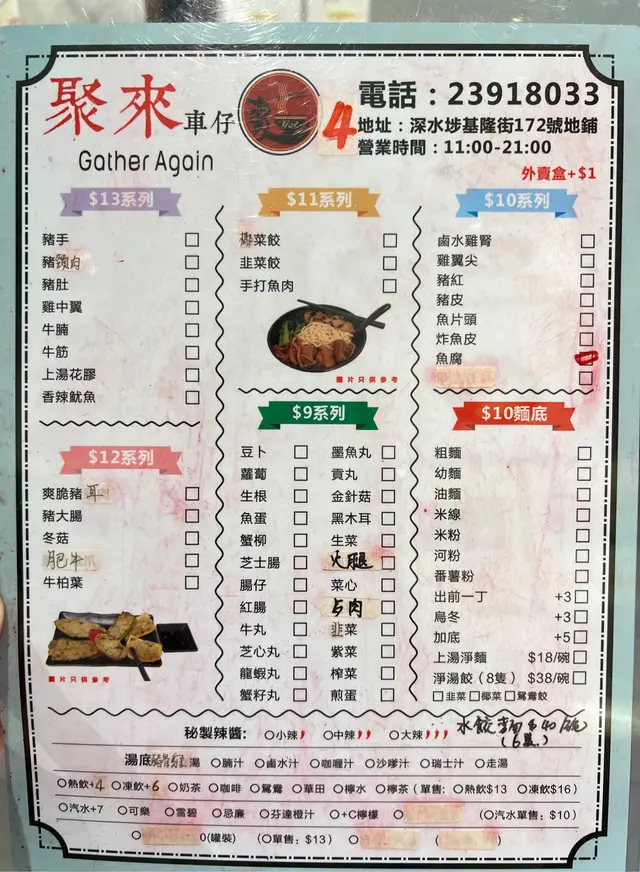 聚來車仔
Gather Again
4
電話：23918033
地址：深水埗基隆街172號地鋪
營業時間：11:00-21:00
外賣盒+$1
$13系列
豬手
豬頸肉
豬肚
雞中翼
牛腩
牛筋
上湯花膠
香辣魷魚
$12系列
爽脆豬耳
豬大腸
冬菇
肥牛
牛柏葉
圖片只供參考
$11系列
椰菜餃
韭菜餃
手打魚肉
圖片只供參考
$9系列
豆卜
蘿蔔
生根
魚蛋
蟹柳
芝士腸
腸仔
紅腸
牛丸
芝心丸
龍蝦丸
蟹籽丸
墨魚丸
貢丸
金針菇
黑木耳
生菜
火腿
菜心
占肉
韭菜
紫菜
榨菜
煎蛋
$10系列
鹵水雞腎
雞翼尖
豬紅
豬皮
魚片頭
炸魚皮
魚腐
$10麵底
粗麵
幼麵
油麵
米線
米粉
河粉
番薯粉
出前一丁 +3
烏冬 +3
加底 +5
上湯淨麵 $18/碗
淨湯餃（8隻） $38/碗
韭菜 椰菜 鴛鴦餃
水餃 麵 $40/碗
秘製辣醬： 小辣 中辣 大辣
湯底 湯 腩汁 鹵水汁 咖喱汁 沙嗲汁 瑞士汁 走湯
熱飲+4 凍飲+6 奶茶 咖啡 鴛鴦 華田 檸水 檸茶（單售: 熱飲$13 凍飲$16）
汽水+7 可樂 雪碧 忌廉 芬達橙汁 +C檸檬 （汽水單售: $10）
0(罐裝) （單售: $13）